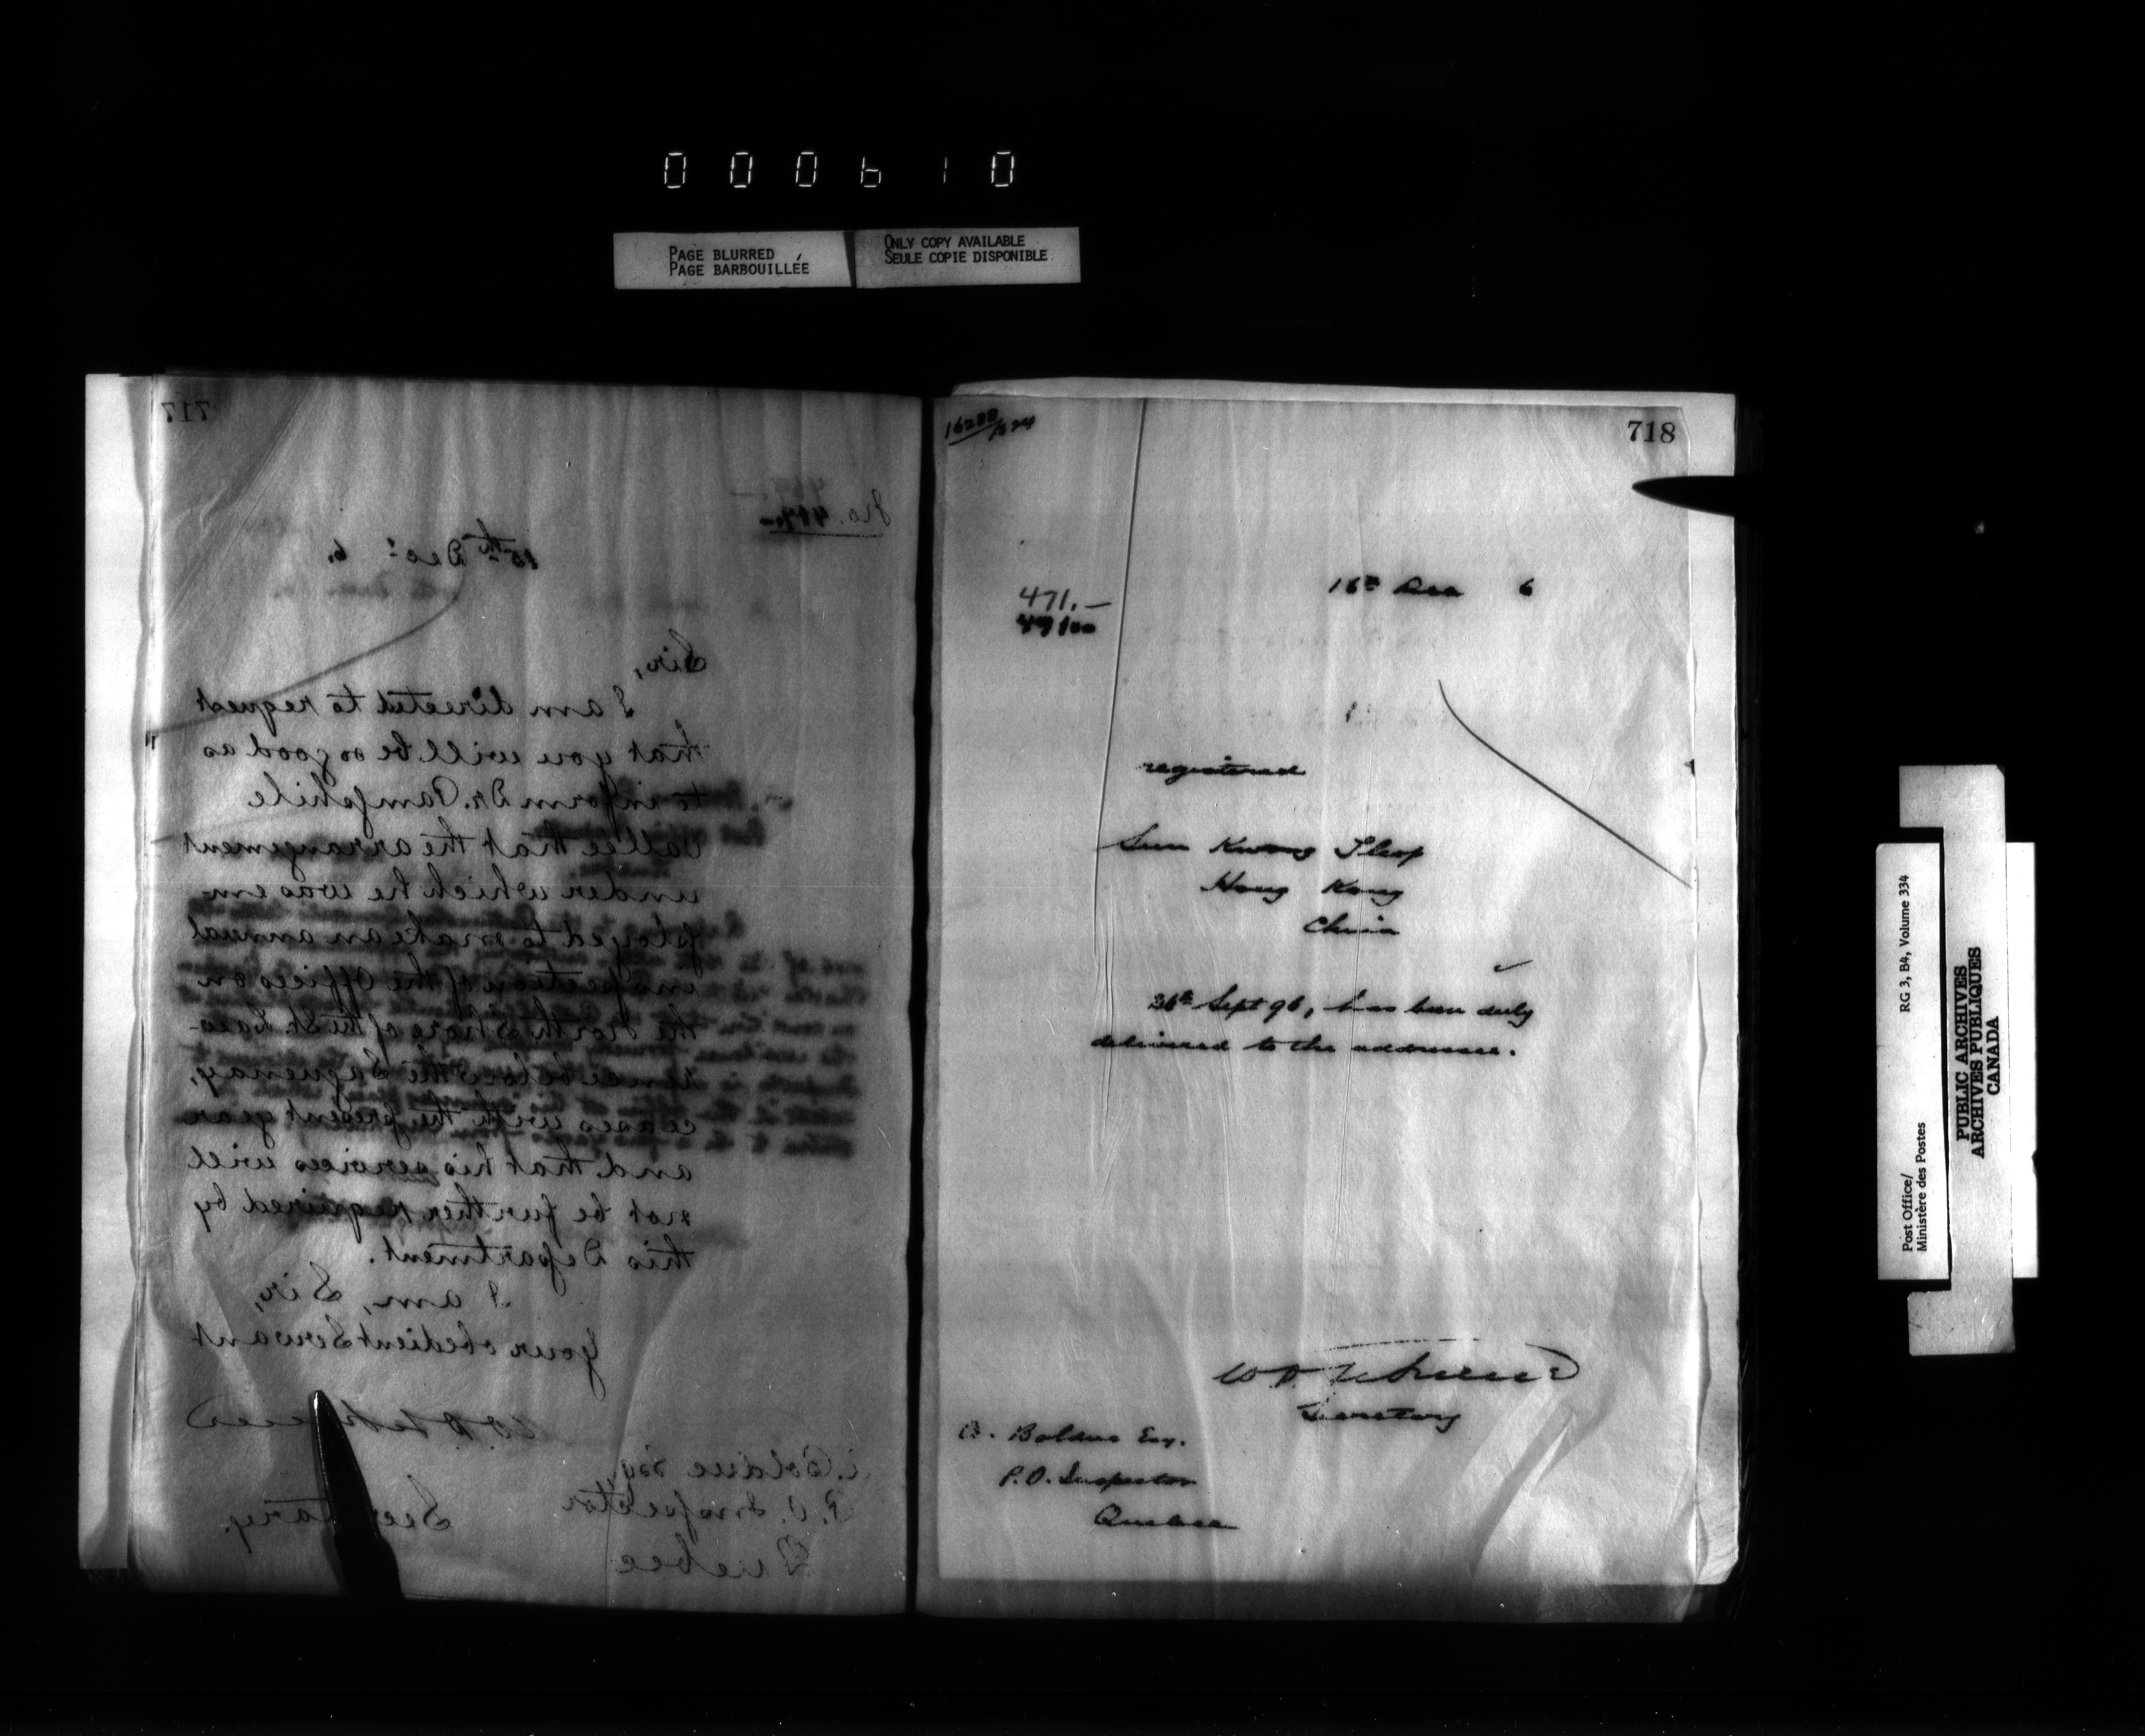 000610
PAGE BLURRED
PAGE BARBOUILLÉE
ONLY COPY AVAILABLE
SEULE COPIE DISPONIBLE
717
No.
15th Decr 6.
Sir,
I am directed to request
that you will be so good as
to inform Dr. Pamphile
Vallée that the arrangement
under which he was em-
ployed to make an annual
inspection of the Offices on
the North Shore of the St. Law-
rence below the Saguenay,
ceases with the present year
and that his services will
not be further required by
this Department.
I am, Sir,
Your obedient Servant
Secretary.
Bolduc Esqr
P.O. Inspector
Quebec
718
16288/524
16th Dec 6
471.—
registered
Sun Kwong
Hong Kong
China
26th Sept 96, has been duly
delivered to the addressee.
Secretary
Bolduc Esq.
P.O. Inspector
Quebec
Post Office/
Ministère des Postes
RG 3, B4, Volume 334
PUBLIC ARCHIVES
ARCHIVES PUBLIQUES
CANADA